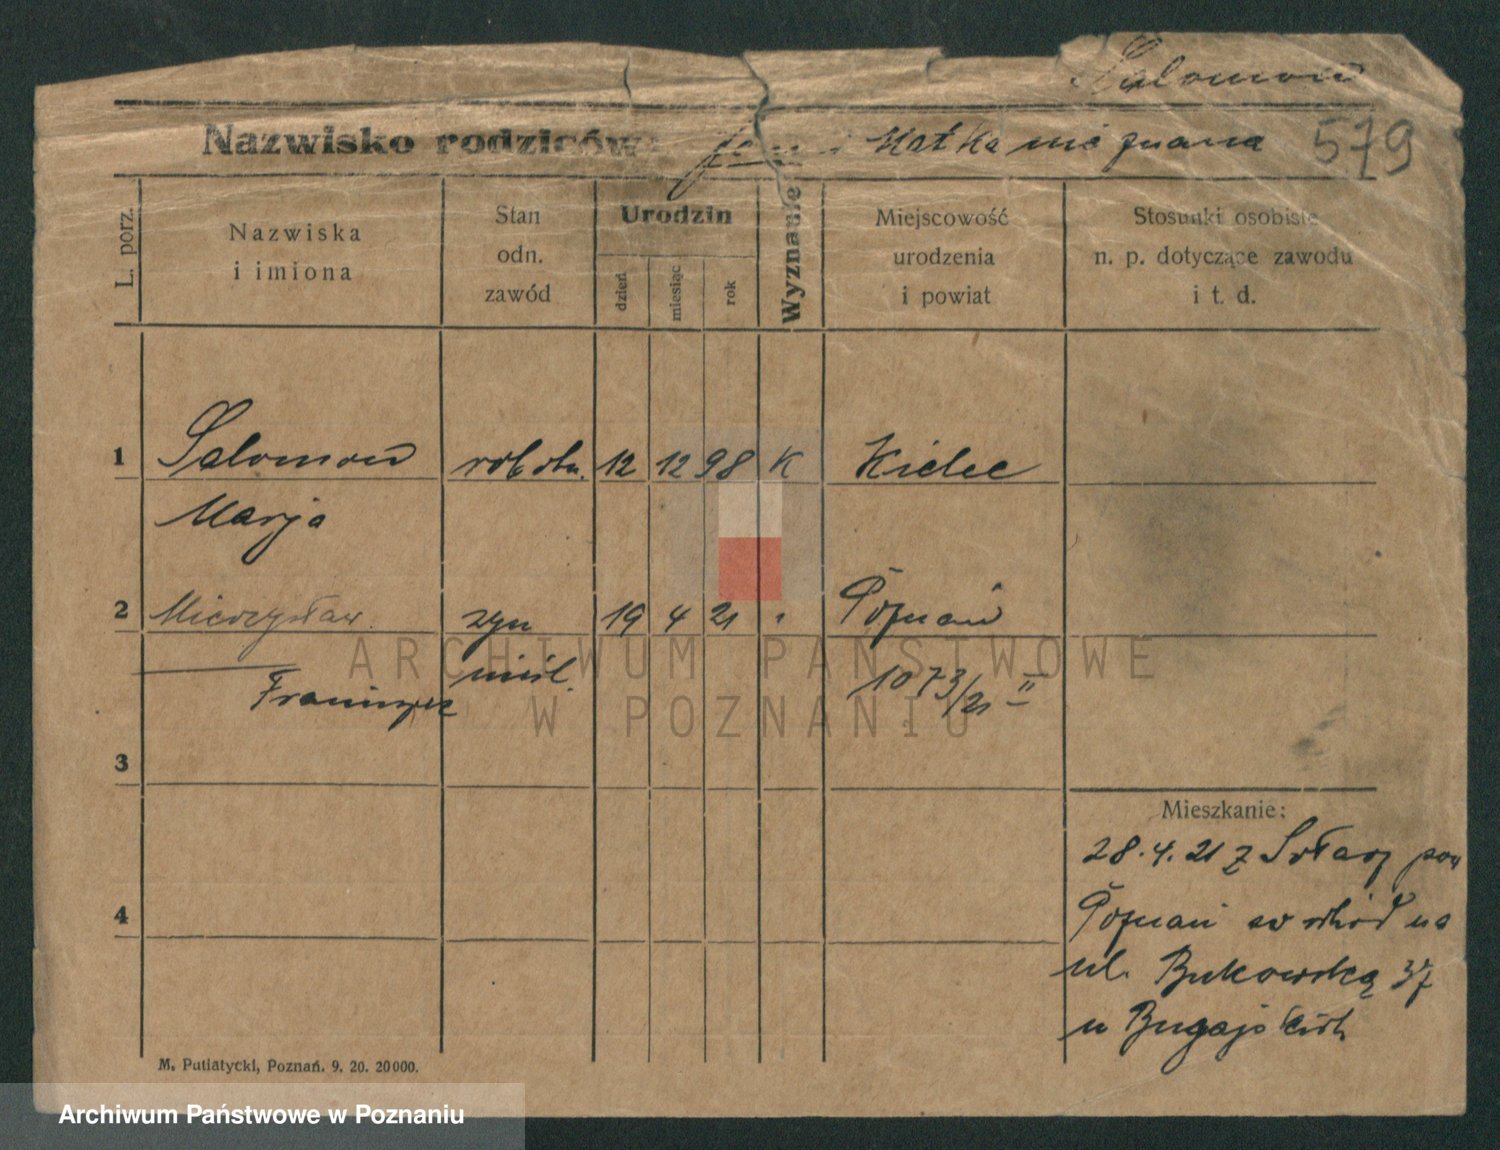 Salomon
Nazwisko rodziców: Matka nie znana 579
L. porz.
Nazwiska
i imiona
Stan
odn.
zawód
Urodzin
dzień
miesiąc
rok
Wyznanie
Miejscowość
urodzenia
i powiat
Stosunki osobiste
n. p. dotyczące zawodu
i t. d.
1 Salomon robotn. 12 12 98 K Kielce
Marja
2 Mieczysław syn 19 4 21 " Poznań
Franciszek 1073/21 II
3
Mieszkanie:
28.4.21 z pow
4 Poznań na
ul. Bukowską 37
u
M. Putiatycki, Poznań. 9. 20. 20000.
ARCHIWUM PAŃSTWOWE
W POZNANIU
Archiwum Państwowe w Poznaniu